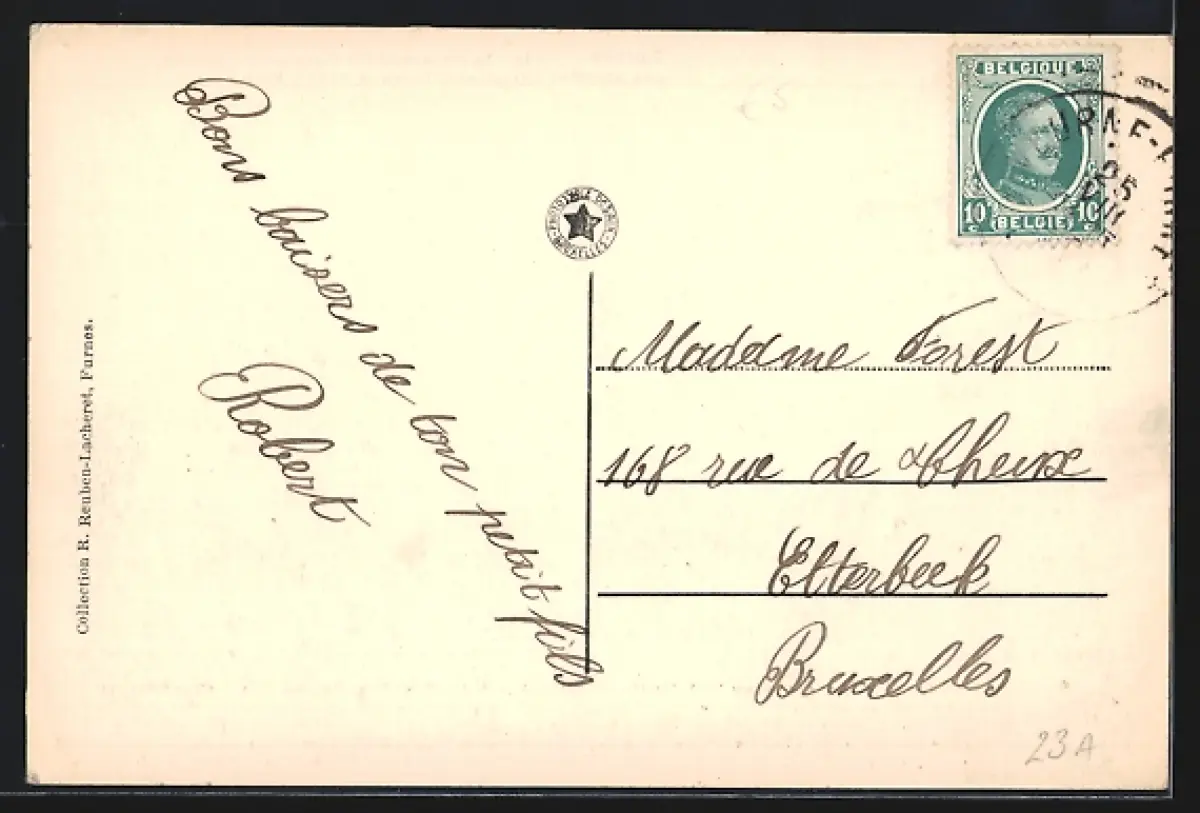 Bons baisers de ton petit fils
Robert
Collection R. Reuben-Lacheret, Furnes.
BELGIQUE
10 BELGIE 10
Madame Forest
168 rue de
Etterbeek
Bruxelles
23A